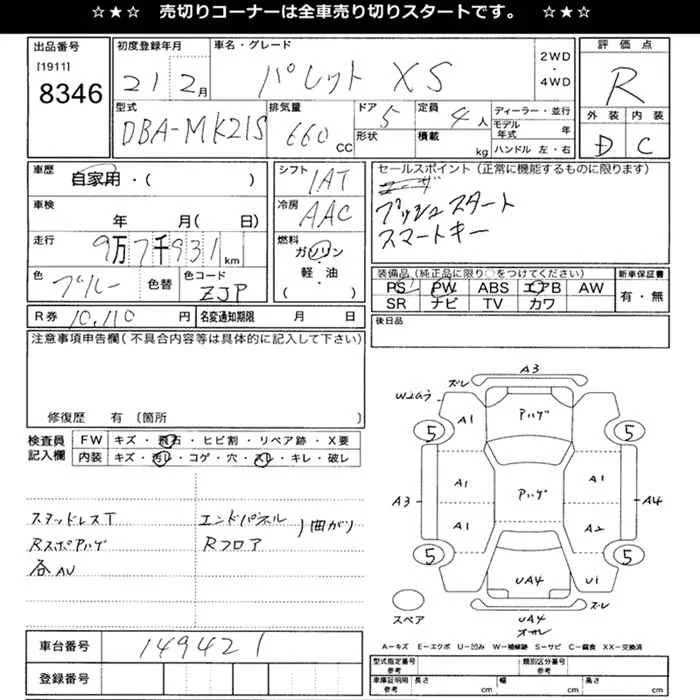 ☆★☆ 売切りコーナーは全車売り切りスタートです。 ☆★☆
出品番号
[1911]
8346
初度登録年月
21 2月
車名・グレード
パレット XS
2WD
・
4WD
評価点
R
外装 内装
D C
型式
DBA-MK21S
排気量
660 CC
ドア 5
形状
定員 4人
積載 kg
ディーラー・並行
モデル年式 年
ハンドル 左・右
車歴
自家用・( )
車検
年 月( 日)
走行
9万7千931km
色 ブルー 色替
色コード
ZJP
シフト
IAT
冷房
AAC
燃料
ガソリン
・
軽・油
( )
セールスポイント(正常に機能するものに限ります)
プッシュスタート
スマートキー
装備品(純正品に限り○をつけてください) 新車保証書
PS PW ABS エアB AW
SR ナビ TV カワ
有・無
R券 10,110 円 名変通知期限 月 日
後日品
注意事項申告欄(不具合内容等は具体的に記入して下さい)
修復歴 有〔箇所 〕
検査員記入欄
FW キズ・飛石・ヒビ割・リペア跡・X要
内装 キズ・汚レ・コゲ・穴・スレ・キレ・破レ
スタッドレスT
Rスポアハゲ
各AU
エンドパネル
Rフロア
曲がり
A3
ズレ
A1
アハゲ
5
5
A1
A1
A3
アハゲ
A4
A1
A2
5
5
UA4
U1
ズレ
UA4
スペア
A=キズ E=エクボ U=凹み W=補修跡 S=サビ C=腐食 XX=交換済
車台番号 149421
登録番号
型式指定番号 参考
類別区分番号 参考
車庫証明用 参考
長さ cm 幅 cm 高さ cm